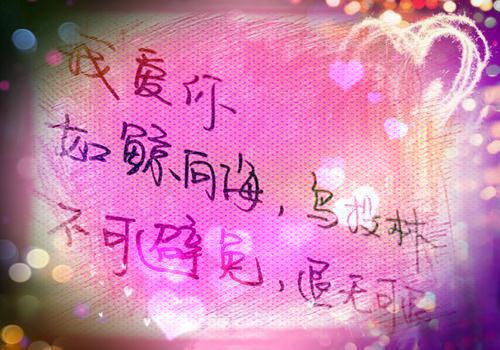 我爱你
如鲸向海，鸟投林
不可避免，退无可退